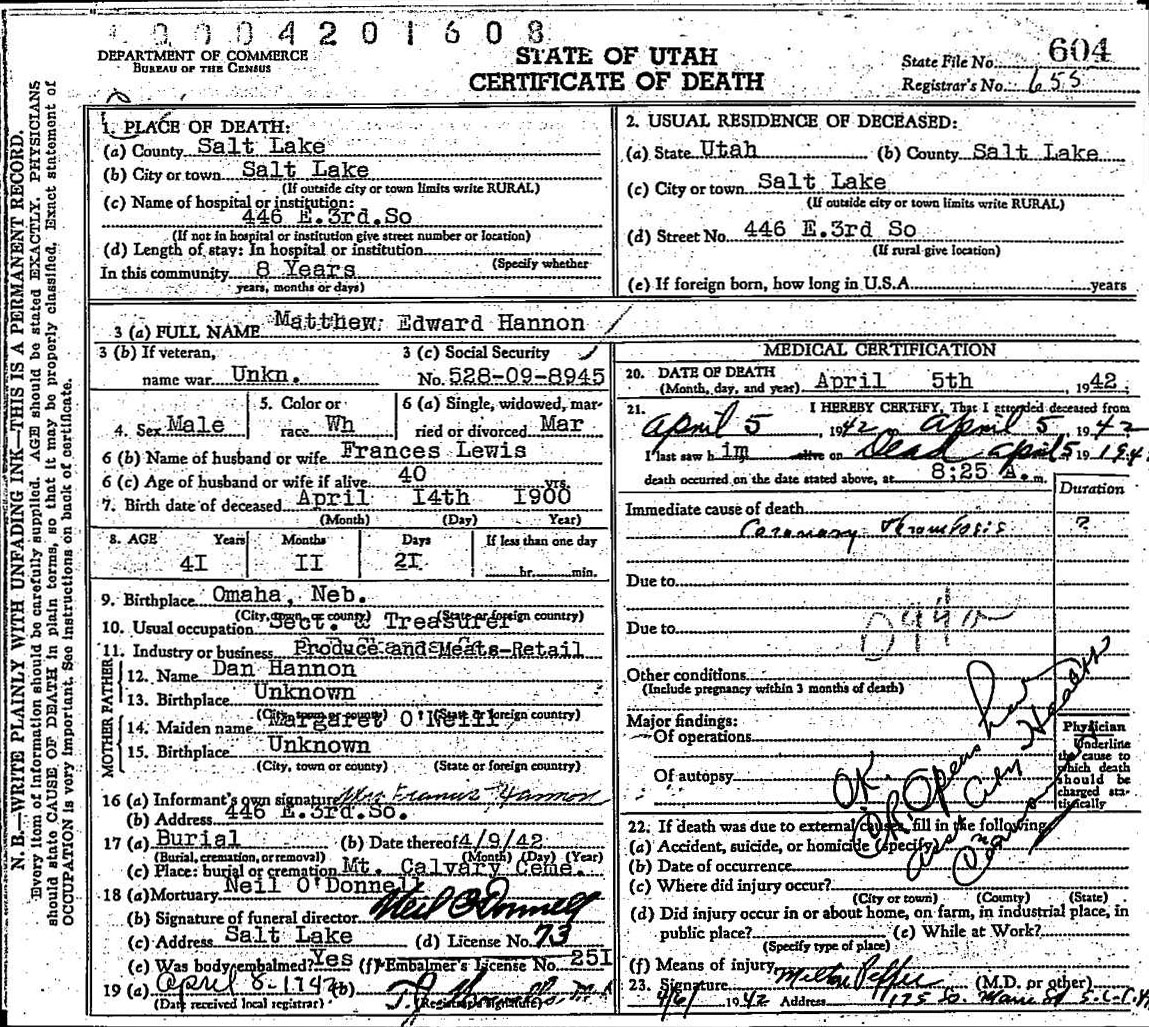 0004201608
DEPARTMENT OF COMMERCE
BUREAU OF THE CENSUS
STATE OF UTAH
CERTIFICATE OF DEATH
State File No. 604
Registrar's No. 655
N. B.—WRITE PLAINLY WITH UNFADING INK—THIS IS A PERMANENT RECORD.
Every item of information should be carefully supplied. AGE should be stated EXACTLY. PHYSICIANS
should state CAUSE OF DEATH in plain terms, so that it may be properly classified. Exact statement of
OCCUPATION is very important. See instructions on back of certificate.
1. PLACE OF DEATH:
(a) County Salt Lake
(b) City or town Salt Lake
(If outside city or town limits write RURAL)
(c) Name of hospital or institution:
446 E.3rd.So
(If not in hospital or institution give street number or location)
(d) Length of stay: In hospital or institution
(Specify whether
In this community 8 Years
years, months or days)
2. USUAL RESIDENCE OF DECEASED:
(a) State Utah (b) County Salt Lake
(c) City or town Salt Lake
(If outside city or town limits write RURAL)
(d) Street No. 446 E.3rd So
(If rural give location)
(e) If foreign born, how long in U.S.A. years
3 (a) FULL NAME Matthew Edward Hannon
3 (b) If veteran,
name war Unkn.
3 (c) Social Security
No. 528-09-8945
4. Sex Male
5. Color or
race Wh
6 (a) Single, widowed, mar-
ried or divorced Mar
6 (b) Name of husband or wife Frances Lewis
6 (c) Age of husband or wife if alive 40 yrs.
7. Birth date of deceased April 14th 1900
(Month) (Day) Year)
8. AGE Years Months Days If less than one day
4I II 2I hr. min.
9. Birthplace Omaha, Neb.
(City, town or county) (State or foreign country)
10. Usual occupation Sect. & Treasurer
11. Industry or business Produce and Meats-Retail
FATHER
12. Name Dan Hannon
13. Birthplace Unknown
(City, town or county) (State or foreign country)
MOTHER
14. Maiden name Margaret O'Neill
15. Birthplace Unknown
(City, town or county) (State or foreign country)
16 (a) Informant's own signature Mrs Francis Hannon
(b) Address 446 E.3rd.So.
17 (a) Burial (b) Date thereof 4/9/42
(Burial, cremation, or removal) (Month) (Day) (Year)
(c) Place: burial or cremation Mt. Calvary Ceme.
18 (a) Mortuary Neil O'Donnell
(b) Signature of funeral director Neil O'Donnell
(c) Address Salt Lake (d) License No. 73
(e) Was body embalmed? Yes (f) Embalmer's License No. 25I
19 (a) April 8-1942 (b)
(Date received local registrar) (Registrar's signature)
MEDICAL CERTIFICATION
20. DATE OF DEATH
(Month, day, and year) April 5th, 1942
21. I HEREBY CERTIFY, That I attended deceased from
April 5, 1942 April 5, 1942
I last saw h im alive on Dead April 5 19 1942
death occurred on the date stated above, at 8:25 A.m.
Duration
Immediate cause of death
Coronary Thrombosis ?
Due to
Due to
094a
Other conditions
(Include pregnancy within 3 months of death)
Major findings:
Of operations
Of autopsy
Physician
Underline
the cause to
which death
should be
charged sta-
tistically
OK
City Health
22. If death was due to external causes, fill in the following:
(a) Accident, suicide, or homicide (specify)
(b) Date of occurrence
(c) Where did injury occur?
(City or town) (County) (State)
(d) Did injury occur in or about home, on farm, in industrial place, in
public place? (e) While at Work?
(Specify type of place)
(f) Means of injury
23. Signature Milton Pepper (M.D. or other)
4/6/ 1942 Address 175 So. Main St S.L.C.